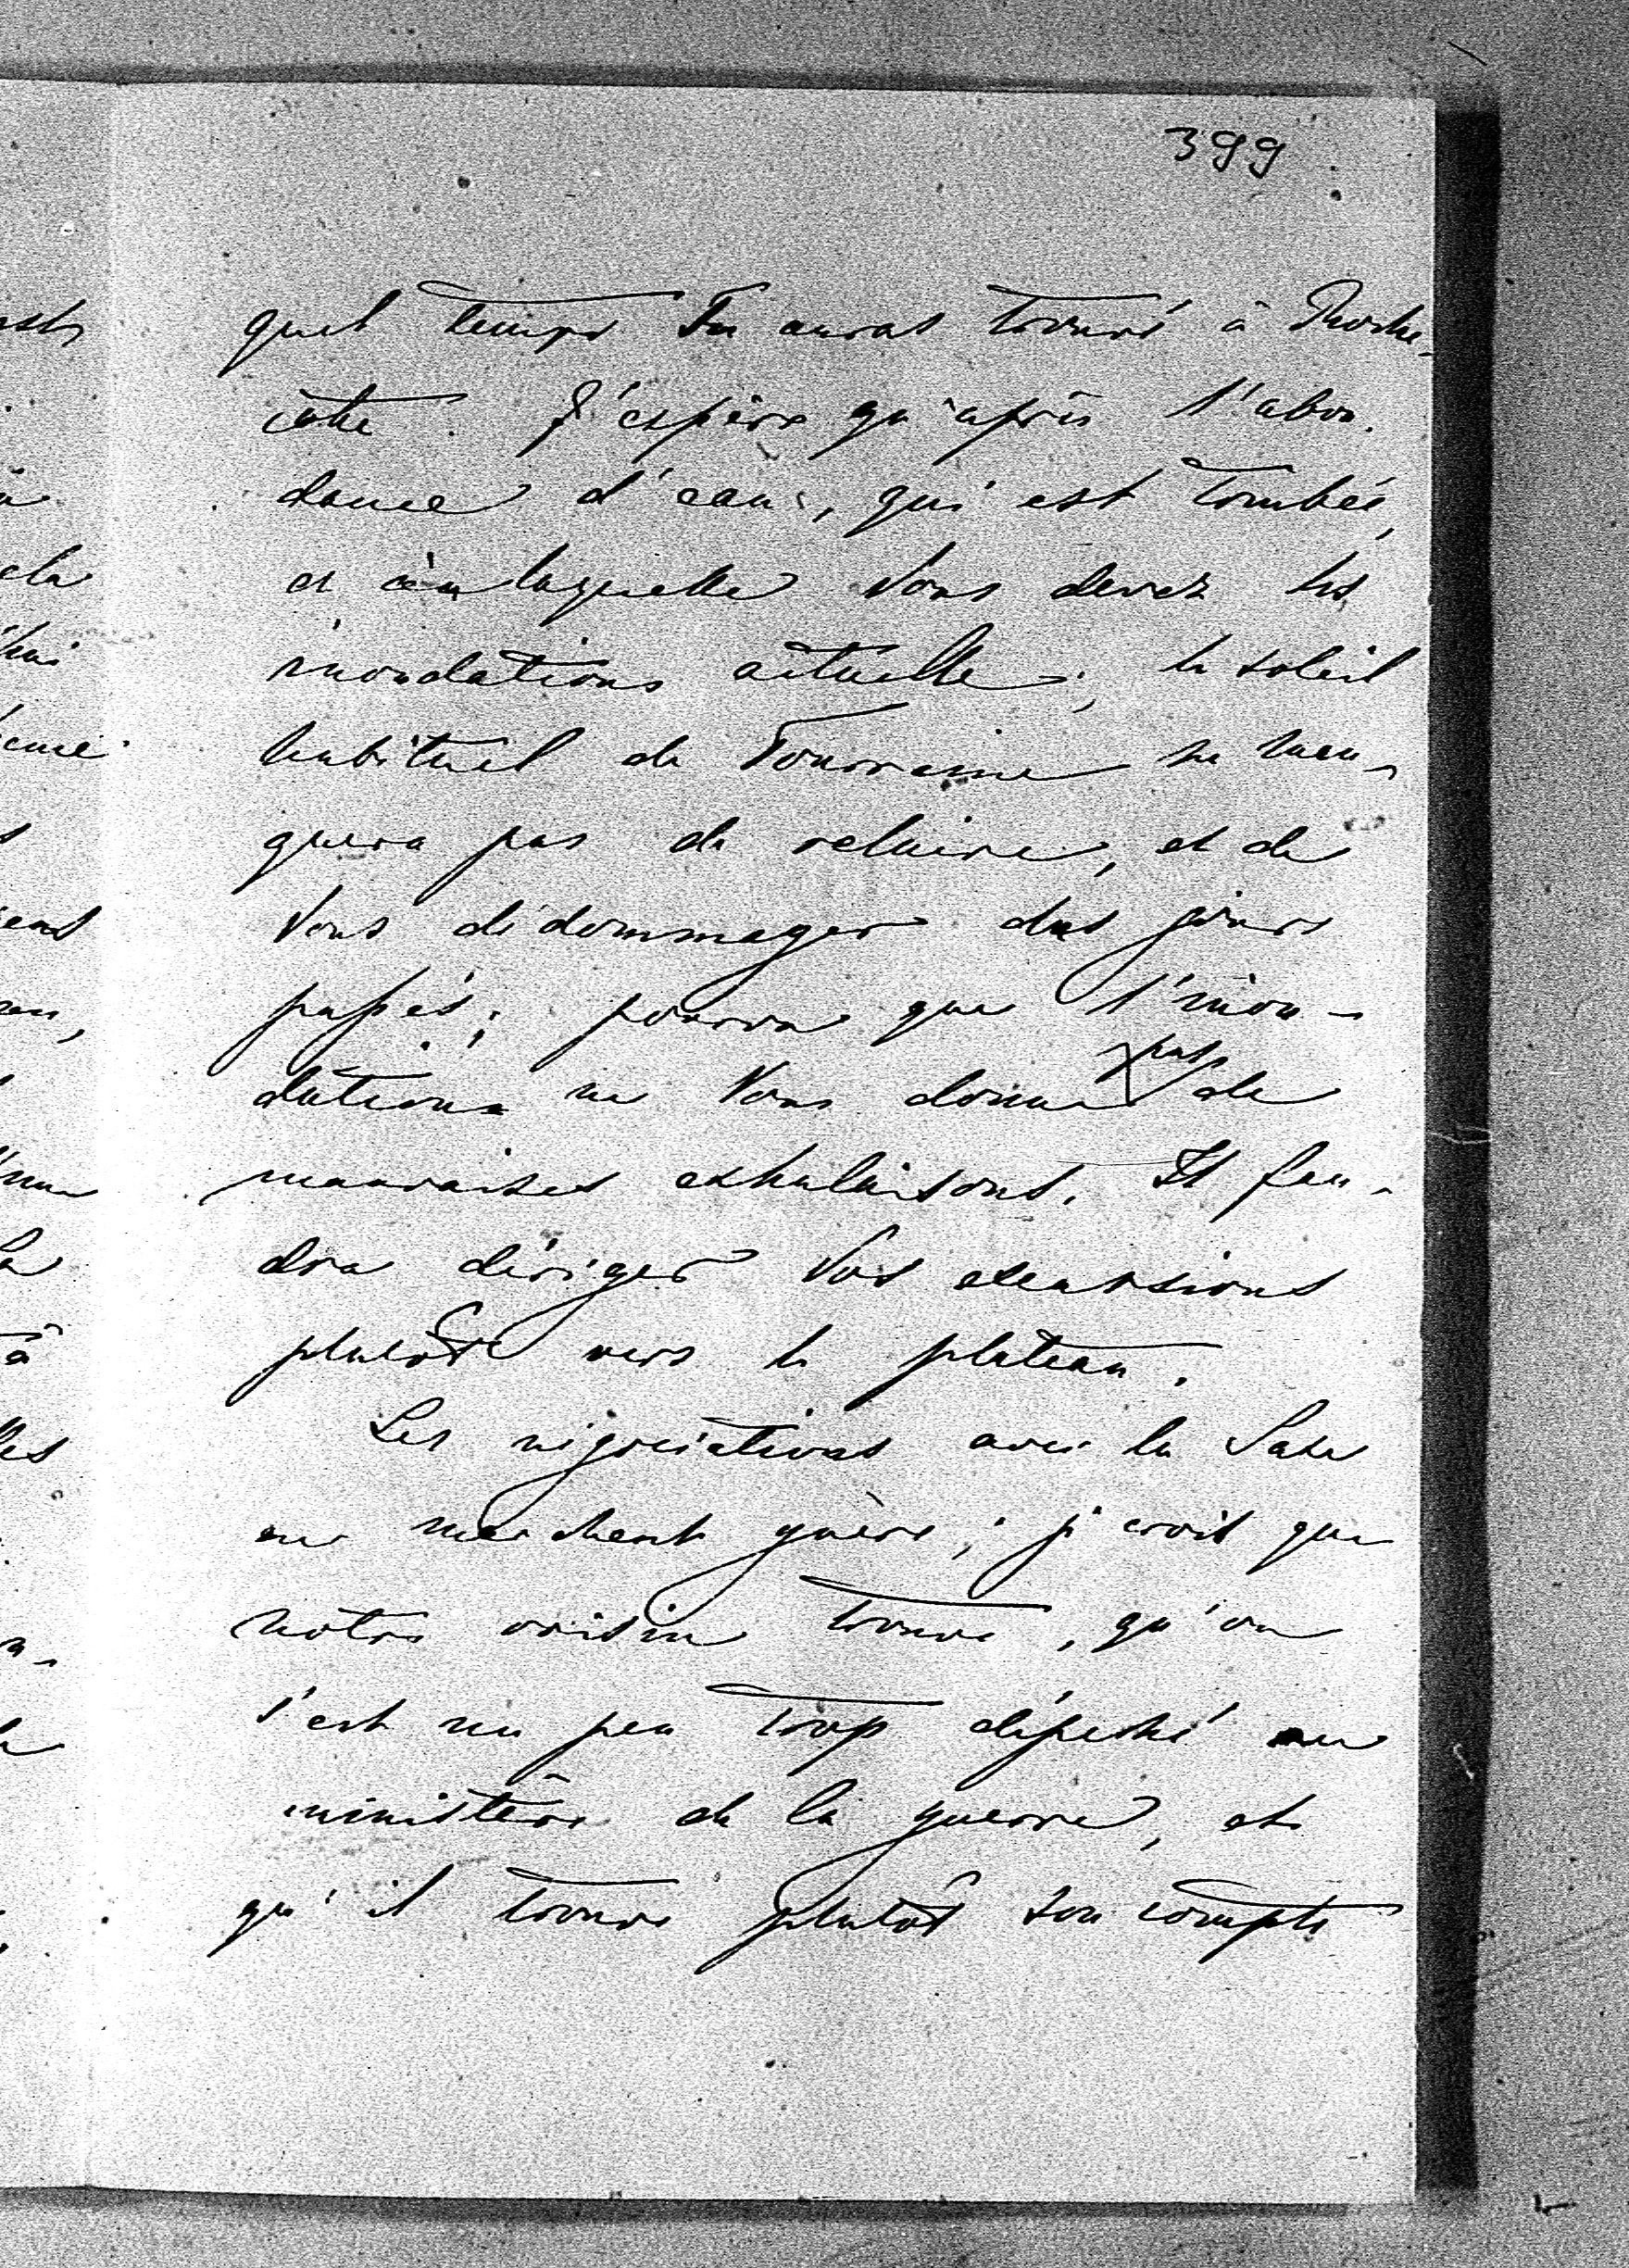 399
quel temps Tu auras trouvé à Roche-
cotte. J'espère qu'après l'abon-
dance d'eau, qui est tombée,
et à laquelle Vous devez les
inondations actuelles, le soleil
habituel de Tourraine ne man-
quera pas de reluire, et de
Vous dédommager des jours
passés; pourvu que l'inon-
dation ne Vous donne pas de
mauvaises exhalaisons. Il fau-
dra diriger Vos excursions
plutôt vers le plateau.
Les négociations avec la Saxe
ne marchent guère; j'crois que
notre voisin trouve, qu'on
s'est un peu trop dépêché au
ministère de la guerre, et
qu'il trouve plutôt son compte